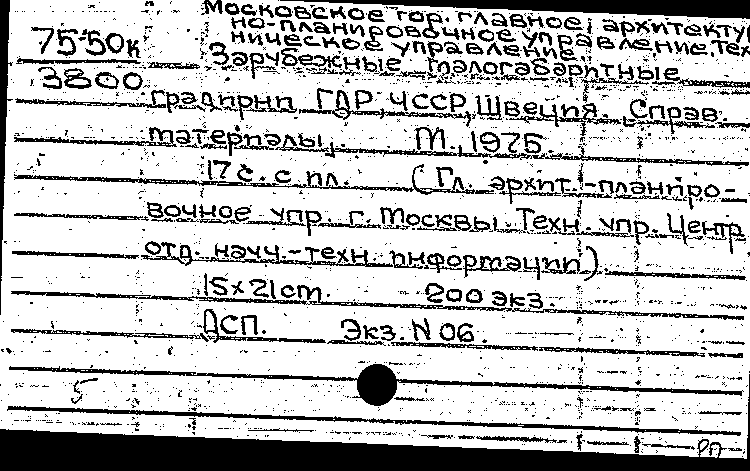 Московское гор. главное архитектур
но-планировочное управление. Тех
ническое управление.
75-50к
Зарубежные малогабаритные
3800
градирни ГДР, ЧССР, Швеция. Справ.
материалы. М., 1975.
17 с. с ил. (Гл. архит.-планиро-
вочное упр. г. Москвы. Техн. упр. Центр
отд. науч.-техн. информации)
15х21cm. 200 экз.
ДСП. Экз. N 06.
5
рп